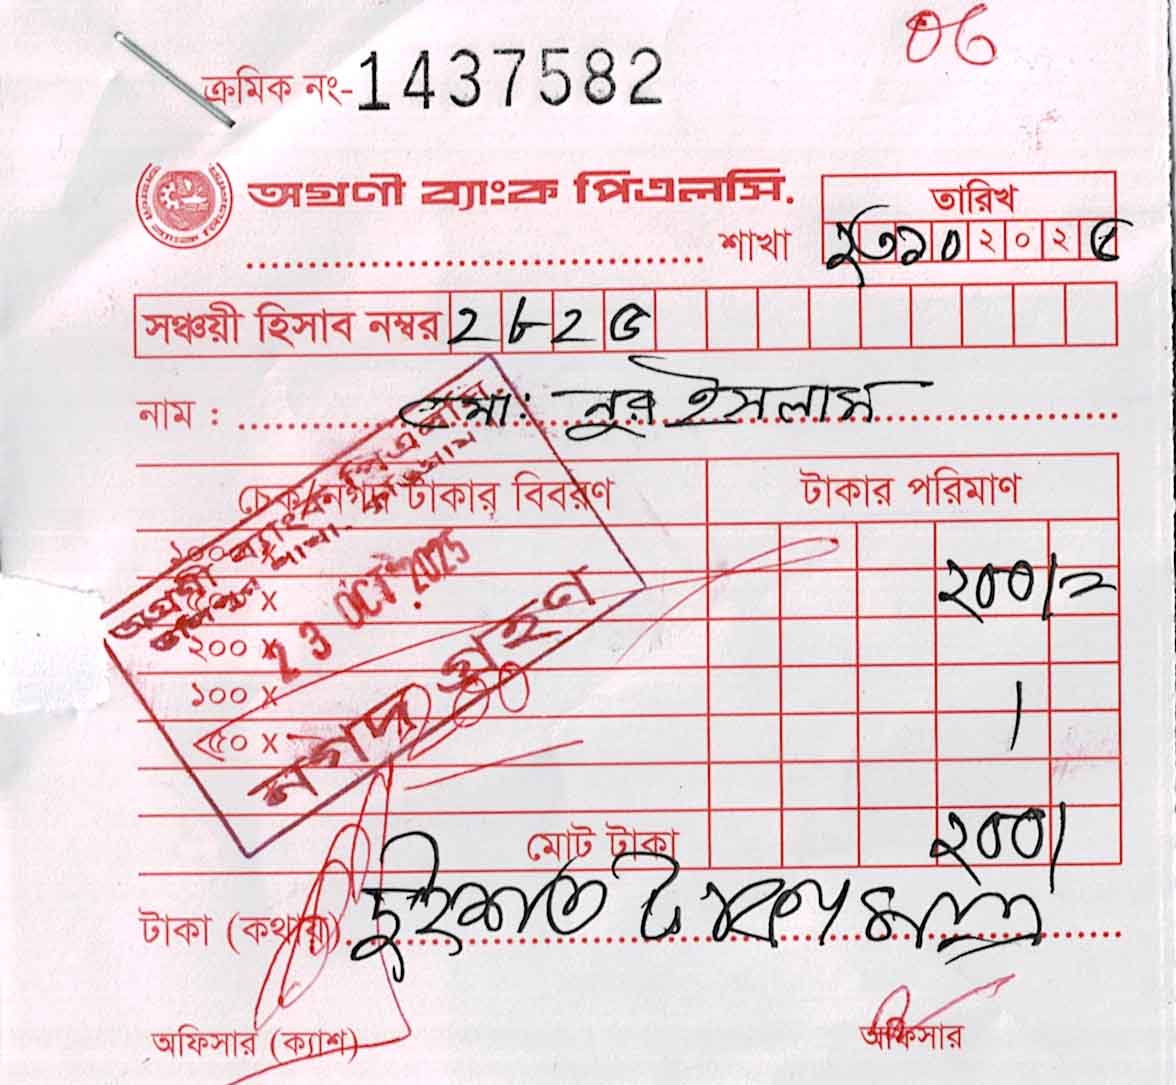 ০৬
ক্রমিক নং-1437582
অগ্রণী ব্যাংক পিএলসি.
তারিখ
শাখা ২৩১০২০২৫
সঞ্চয়ী হিসাব নম্বর 2৮2৫
নাম : মো: নুর ইসলাম
চেক/নগদ টাকার বিবরণ টাকার পরিমাণ
১০০০ x
৫০০ x ২০০/=
২০০ x
১০০ x
৫০ x
অগ্রণী ব্যাংক পিএলসি
শাখা.
23 OCT 2025
নগদ গ্রহণ
200
মোট টাকা ২০০/
টাকা (কথায়) দুইশত টাকা মাত্র
অফিসার (ক্যাশ) অফিসার